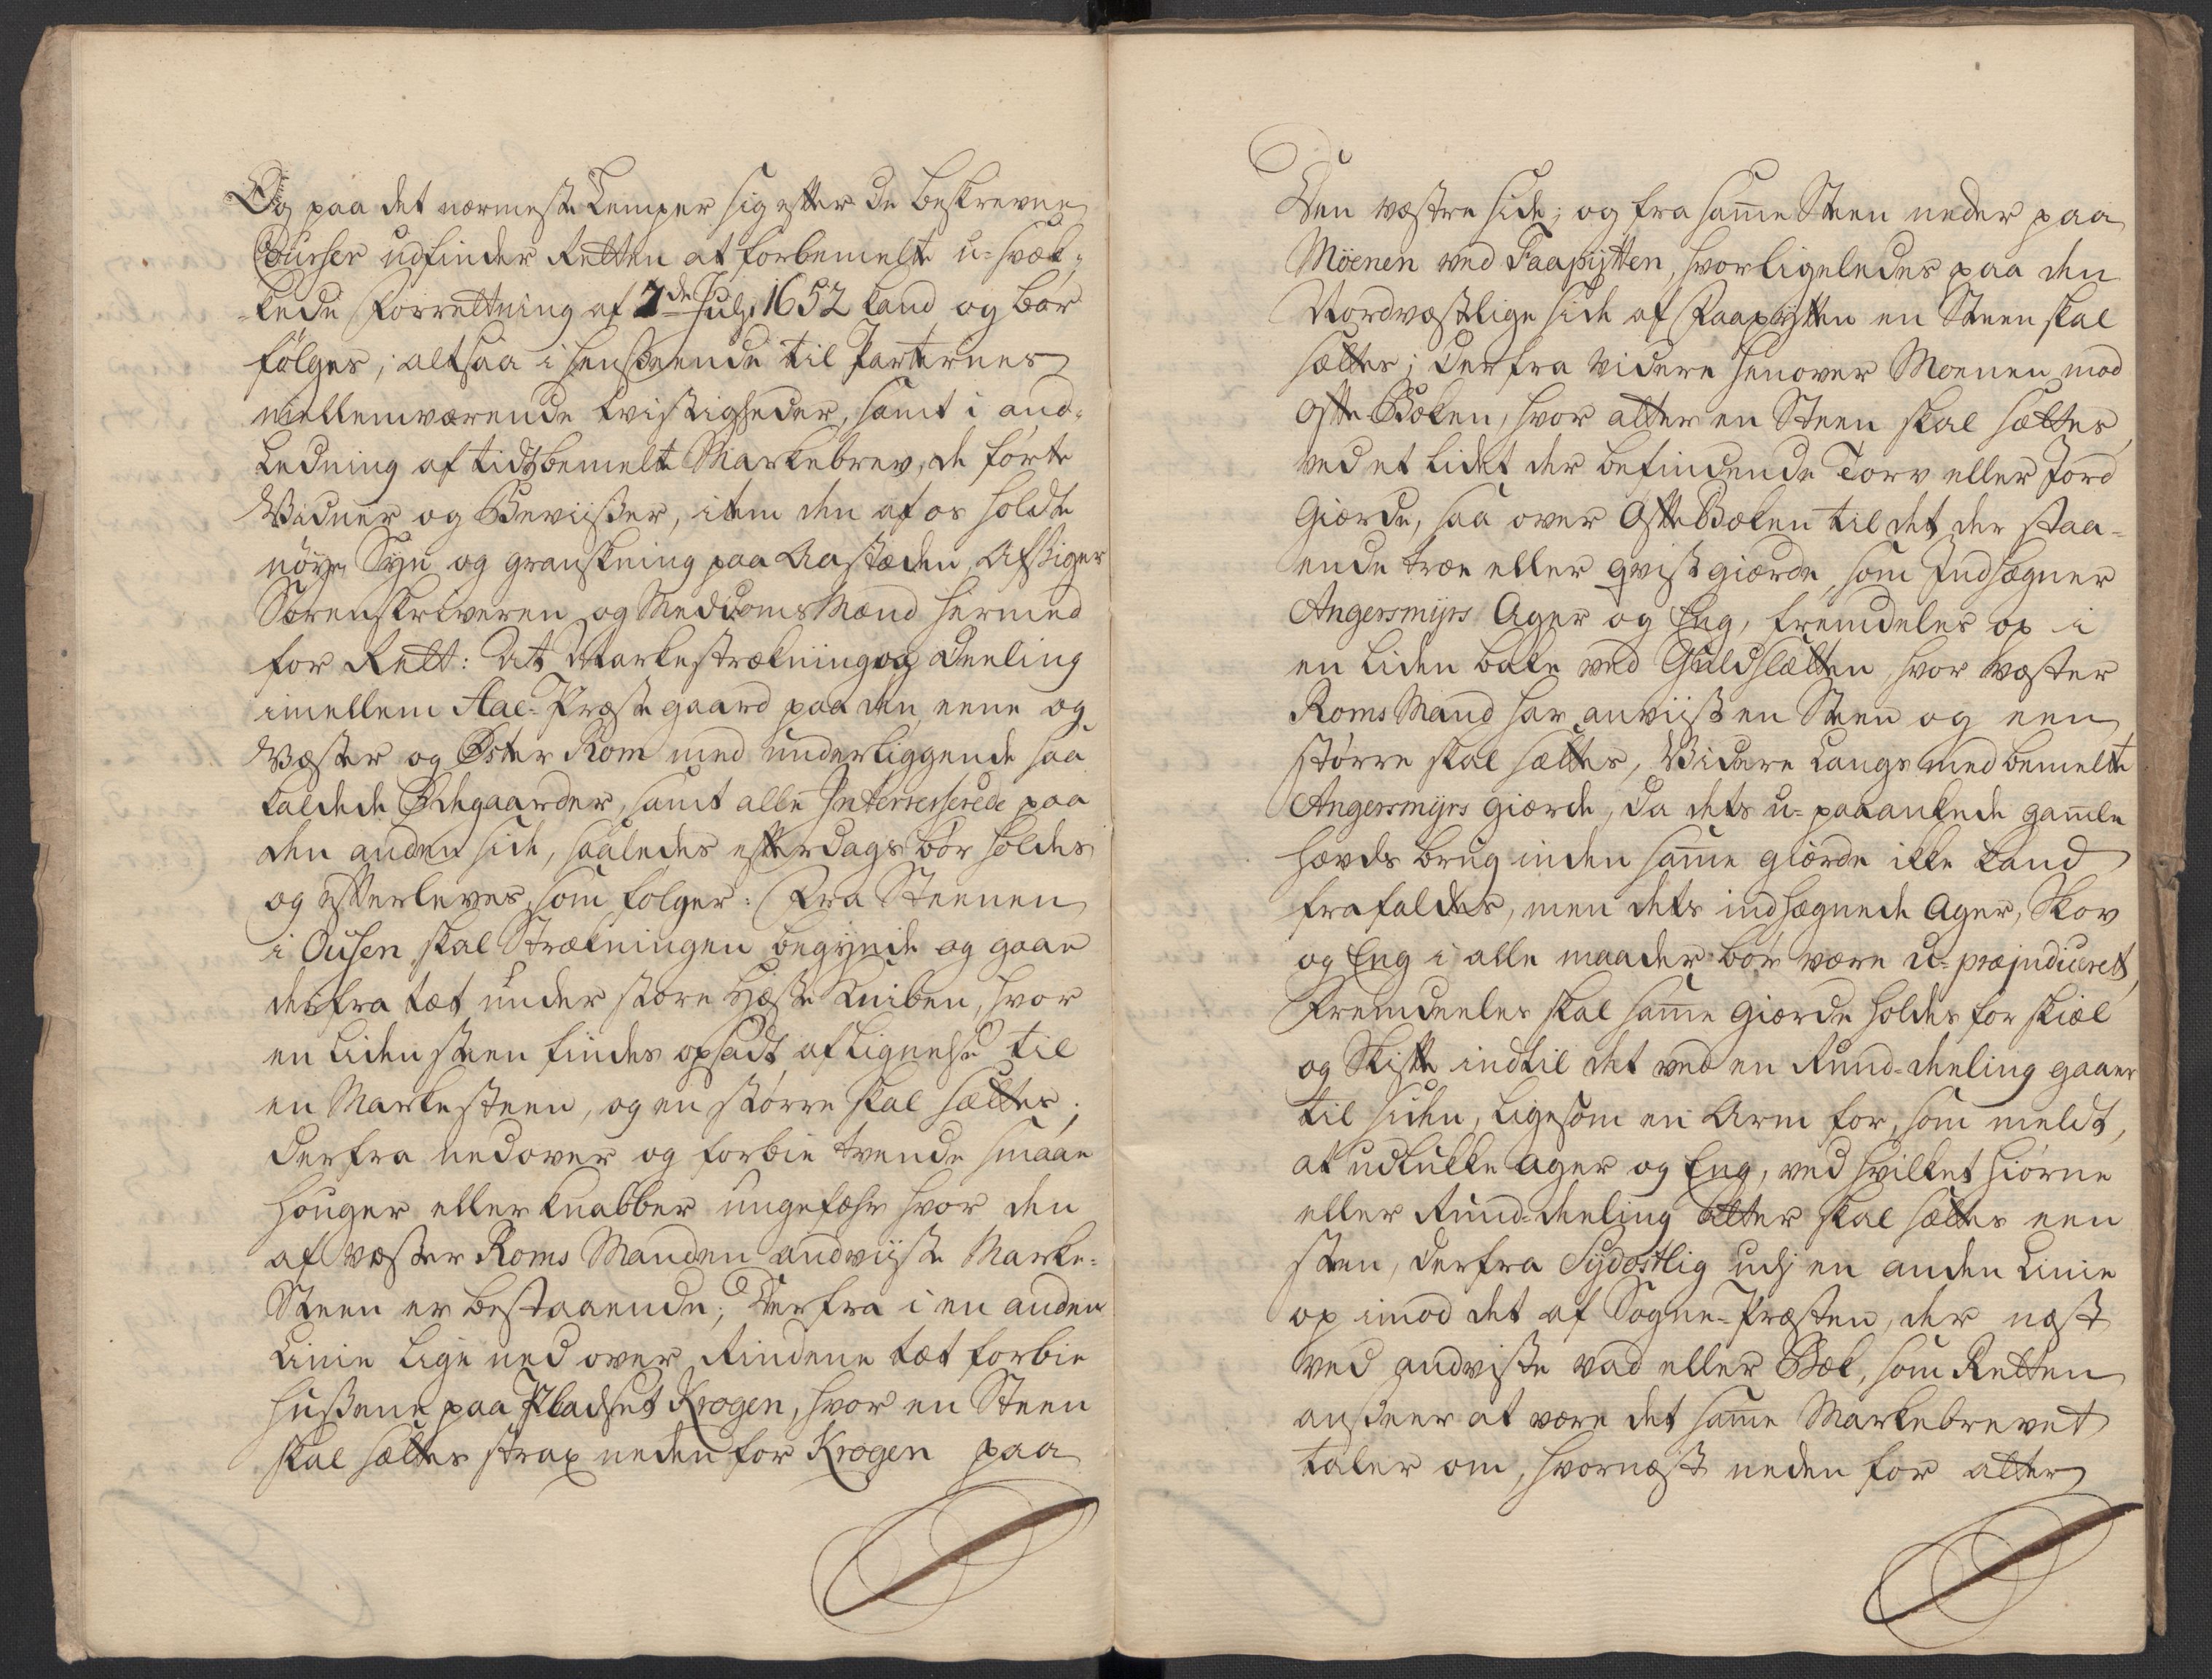 Og paa det nærmeste Lemper sig efter de beskrevne
Courser udfinder Retten at forbemelte u-svæk-
kede Forrettning af 7de Julj 1652 kand og bør
følges; altsaa i henseende til Parternes
mellemværende tvistigheder, samt i and-
Ledning af tidtbemelte Markebrev, de førte
Vidner og Beviisser, item den af os holdte
nøye Syn og granskning paa Aastæden, Afsiger
Sorenskriveren og Meddoms Mænd hermed
for Rett: At Markestrækning og Deeling
imellem Aal-Præstegaard paa den eene og
Væster og Øster Rom med underliggende saa
kaldede Ødegaarder, samt alle Interesserede paa
den anden side, saaledes efterdags bør holdes
og efterleves, som følger: Fra Steenen
i Ousen skal Strækningen begynde og gaae
derfra tæt under store Hæste Kniben, hvor
en liden steen findes opsadt af Lignelse til
en Markesteen, og en større skal sættes;
derfra nedover og forbie tvende smaae
Houger eller knabber ungefæhr hvor den
af Væster Roms Manden andviiste Marke-
Steen er bestaaende; Derfra i en anden
Linie lige ned over Rindene tæt forbie
Hussene paa Pladset Krogen, hvor en Steen
skal sættes strax neden for Krogen paa
Den væstre side; og fra samme Steen neder paa
Möenen ved Faapytten, hvorligeledes paa den
Nordvæstlige side af Faapytten en Steen skal
sættes; Derfra videre henover Moenen mod
Ofte Bæken, hvor atter en Steen skal sættes
ved et lidet der befindende Torv eller Jord
Giærde, saa over Ofte Bæken til det der staa-
ende træe eller qvist giærde, som Indhægner
Angersmyrs Ager og Eng, fremdeles op i
en liden bake ved Guldslætten, hvor Væster
Roms Mand har anviist en Steen og een
større skal sættes, Videre langs med bemelte
Angersmyrs giærde, da dets u-paaankede gamle
hævds brug inden samme giærde ikke kand
frafaldes, men dets indhægnede Ager, Skov
og Eng i alle maader bør være u-præjudiceret,
Fremdeeles skal samme Giærde holdes for skiæl
og Skifte indtil det ved en Rund-deeling gaaer
til siden, ligesom en Arm for, som meldt,
at udlukke Ager og Eng, ved hvilket hiörne
eller Rund-deeling atter skal sættes een
steen, derfra Sydostlig udj en anden Linie
op imod det af Sogne-Præsten, der næst
ved andviste vad eller Bæk, som Retten
anseer at være det samme Markebrevet
taler om, hvornæst neden for atter